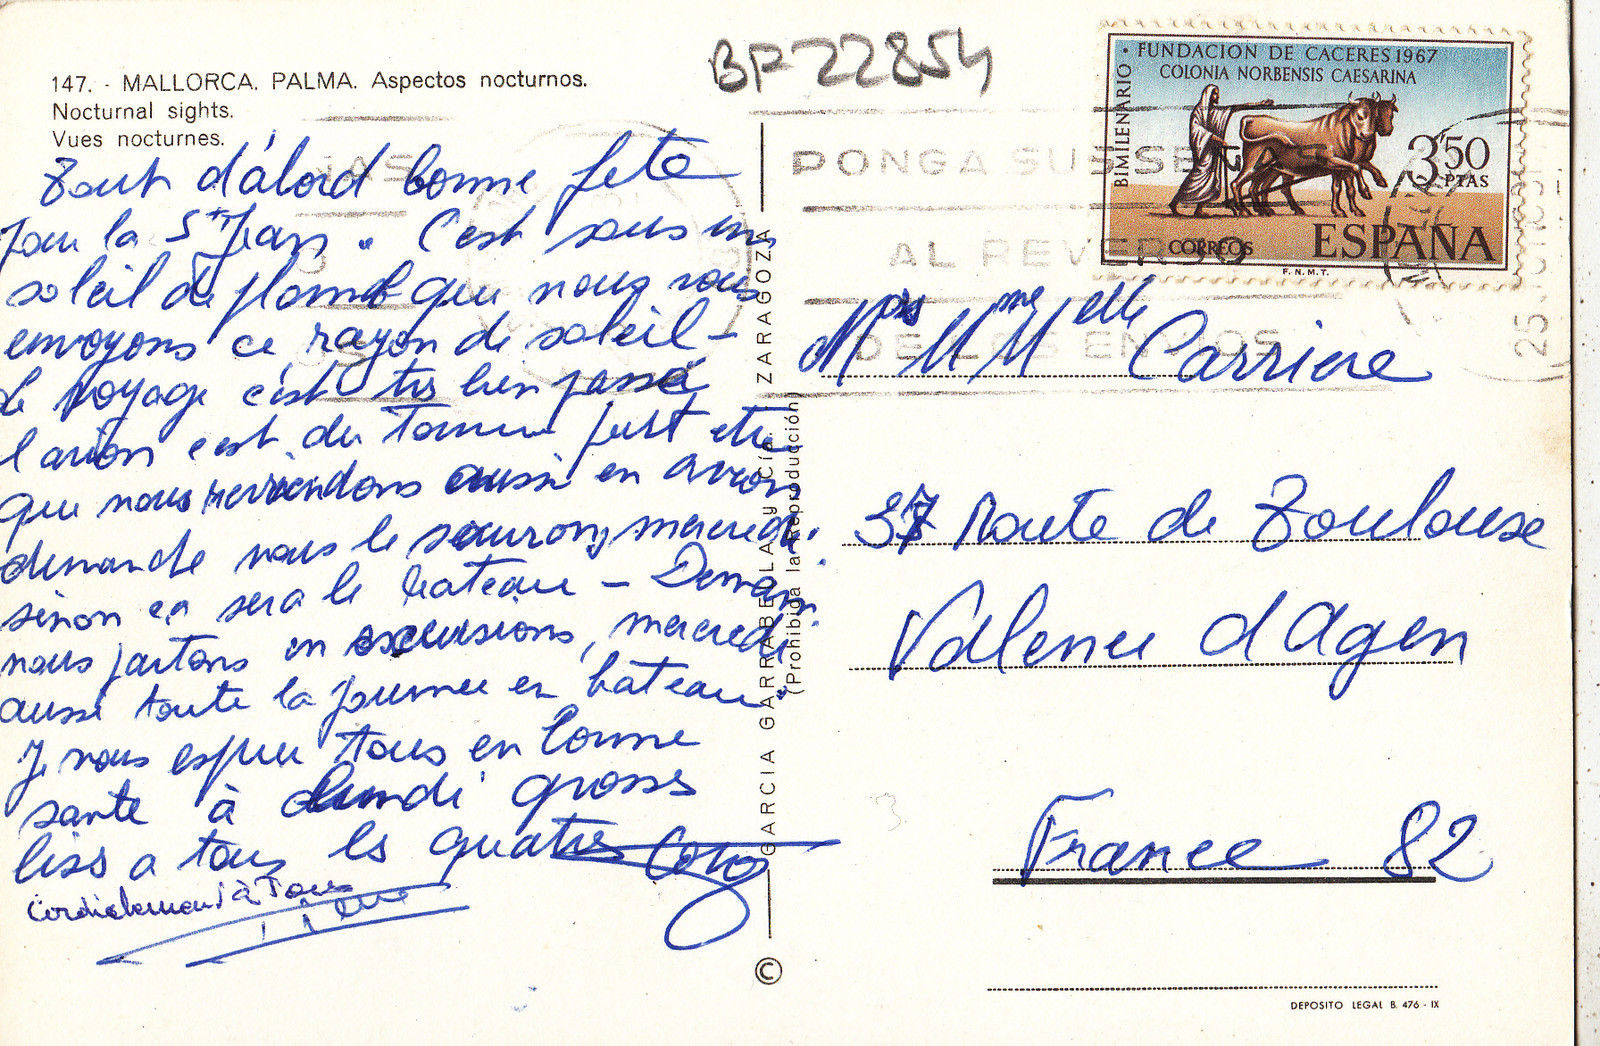 147. - MALLORCA. PALMA. Aspectos nocturnos.
Nocturnal sights.
Vues nocturnes.
Tout d'abord bonne fete
pour la St Jean. C'est sous un
soleil de plomb que nous vous
envoyons ce rayon de soleil -
Le voyage c'est tres bien passé
l'avion c'est du Tonnerre peut etre
que nous reviendons aussi en avion
dimanche nous le saurons mercredi
sinon ca sera le bateau - Demain
nous partons en excursions, mercredi
aussi toute la journee en bateau
Je vous espere tous en bonne
sante à lundi grosses
bises a tous les quatres
Cordialement à Tous
GARCIA GARRABELLA y Cía. ZARAGOZA
(Prohibida la reproducción)
©
BP22854
BIMILENARIO • FUNDACION DE CACERES 1967
COLONIA NORBENSIS CAESARINA
3'50
PTAS
CORREOS ESPAÑA
F.N.M.T.
PONGA SUS SEÑAS
AL REVERSO
DE LOS ENVIOS
25
Mme Melle Carriere
37 Route de Toulouse
Valence d Agen
France 82
DEPOSITO LEGAL B. 476 - IX